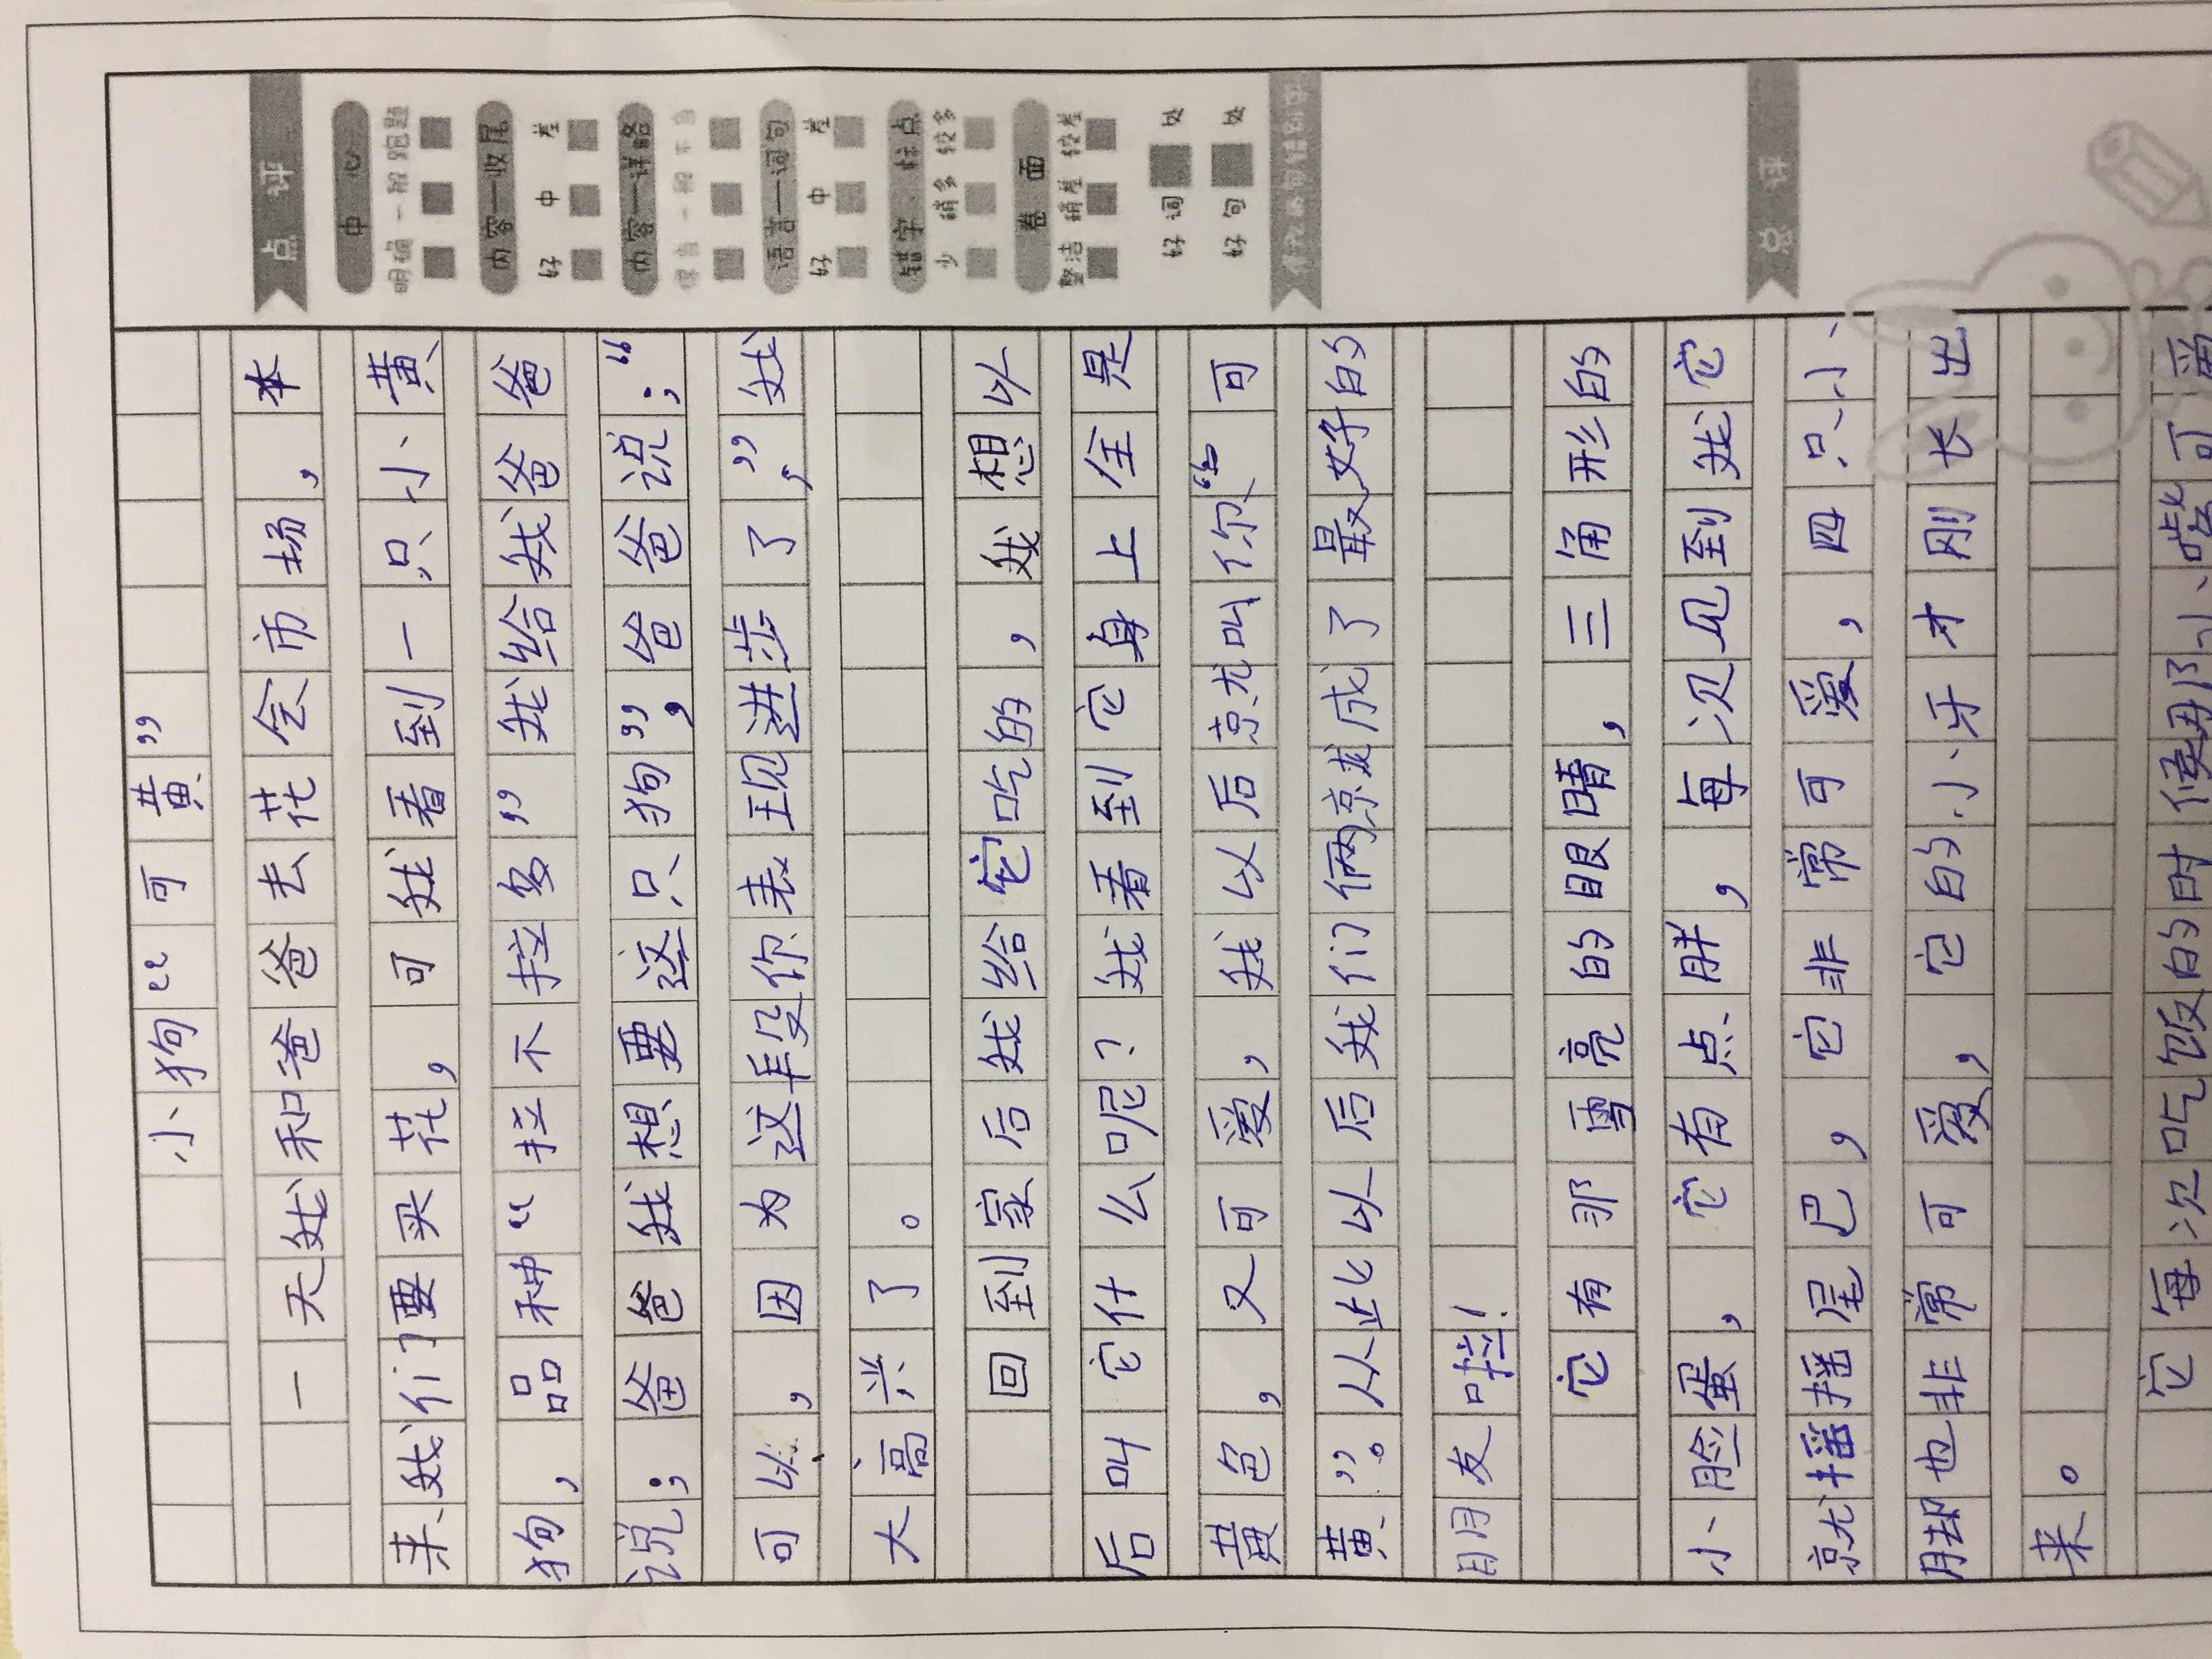 小狗“可黄”
一天我和爸爸去花会市场，本
来我们要买花，可我看到一只小黄
狗，品种“拉不拉多”我给我爸爸
说；爸爸我想要这只狗”，爸爸说；“
可以，因为这年段你表现进步了，”我
大高兴了。
回到家后我给它吃的，我想以
后叫它什么呢？我看到它身上全是
黄色，又可爱，我以后就叫你“可
黄”。从此以后我们俩就成了最好的
朋友啦！
它有那雪亮的眼睛，三角形的
小脸蛋，它有点胖，每次见到我它
就摇摇尾巴，它非常可爱，四只小
脚也非常可爱，它的小牙才刚长出
来。
它每次吃饭的时候用小嘴可爱
点评
中心
明确 一般 跑题
内容—收尾
好 中 差
内容—详略
得当 一般 不当
语言—词句
好 中 差
错字 标点
少 稍多 较多
卷面
整洁 稍差 较差
好词 处
好句 处
总评